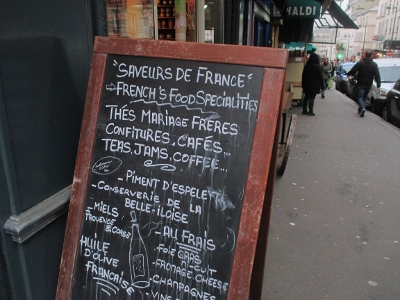 "SAVEURS DE FRANCE"
→FRENCH'S FOOD SPECIALITIES
THÉS MARIAGE FRÈRES
CONFITURES, CAFÉS...
TEAS, JAMS, COFFEE...
- PIMENT D'ESPELETTE
- CONSERVERIE DE LA
BELLE-ILOISE
- MIELS
PROVENCE & CORSE
- AU FRAIS
- FOIE GRAS
MI CUIT
- FROMAGE CHEESE
- CHAMPAGNES
HUILE
D'OLIVE
FRANÇAISE
ALDI